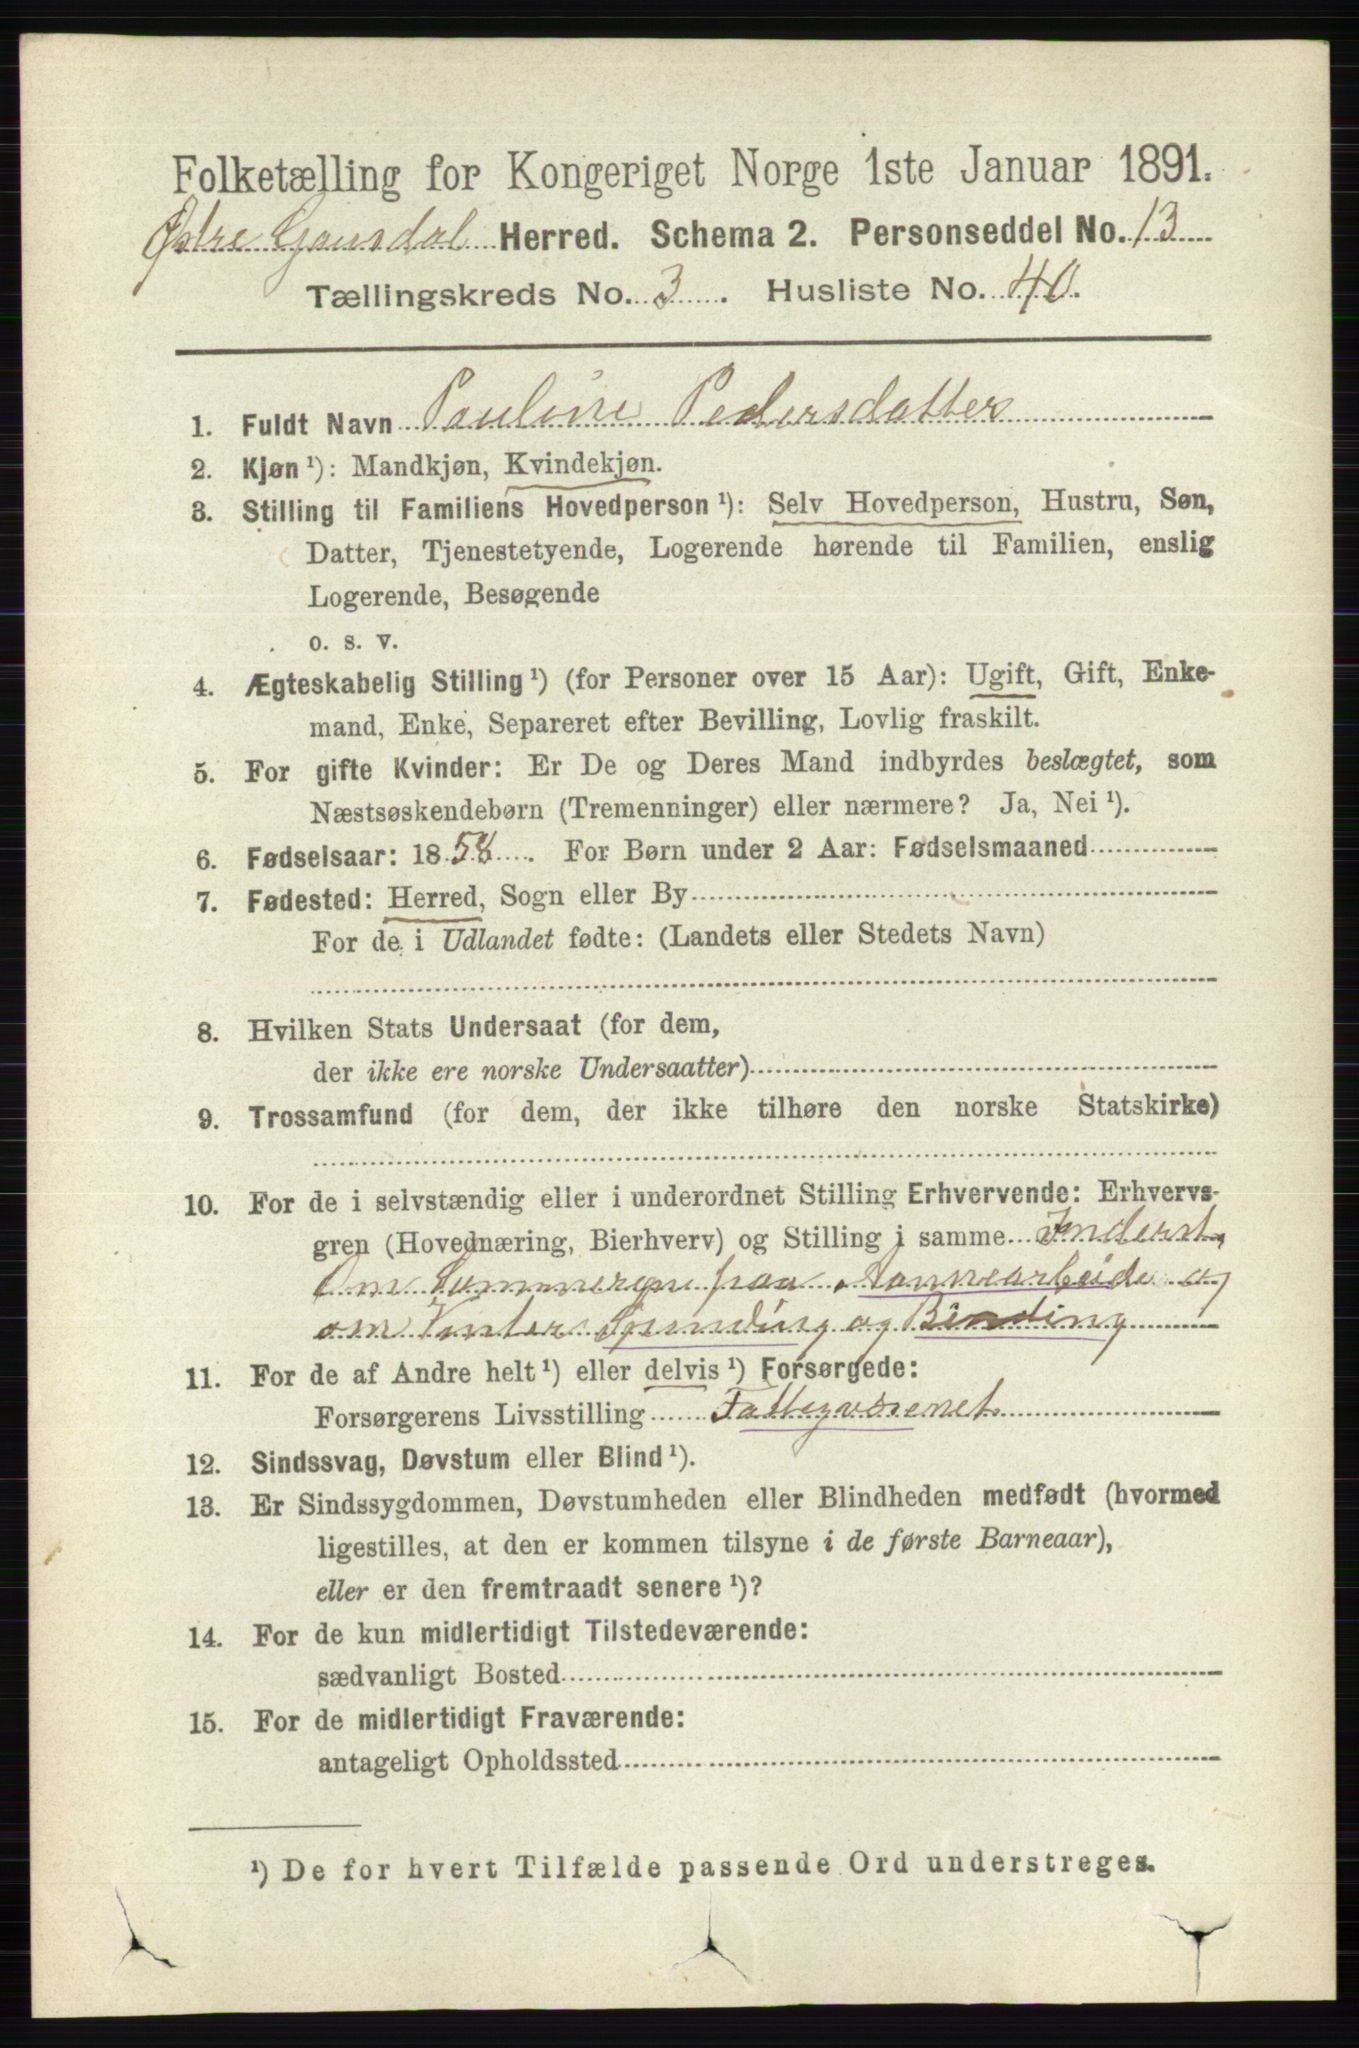 Folketælling for Kongeriget Norge 1ste Januar 1891.
Østre Gausdal Herred. Schema 2. Personseddel No. 13
Tællingskreds No. 3. Husliste No. 40.
1. Fuldt Navn Pauline Pedersdatter
2. Kjøn ¹): Mandkjøn, Kvindekjøn.
3. Stilling til Familiens Hovedperson ¹): Selv Hovedperson, Hustru, Søn,
Datter, Tjenestetyende, Logerende hørende til Familien, enslig
Logerende, Besøgende
o. s. v.
4. Ægteskabelig Stilling ¹) (for Personer over 15 Aar): Ugift, Gift, Enke-
mand, Enke, Separeret efter Bevilling, Lovlig fraskilt.
5. For gifte Kvinder: Er De og Deres Mand indbyrdes beslægtet, som
Næstsøskendebørn (Tremenninger) eller nærmere? Ja, Nei ¹).
6. Fødselsaar: 1858. For Børn under 2 Aar: Fødselsmaaned
7. Fødested: Herred, Sogn eller By
For de i Udlandet fødte: (Landets eller Stedets Navn)
8. Hvilken Stats Undersaat (for dem,
der ikke ere norske Undersaatter)
9. Trossamfund (for dem, der ikke tilhøre den norske Statskirke)
10. For de i selvstændig eller i underordnet Stilling Erhvervende: Erhvervs-
gren (Hovednæring, Bierhverv) og Stilling i samme Inderst,
Om Sommeren paa Aannearbeide og
om Vinter Spinding og Binding
11. For de af Andre helt ¹) eller delvis ¹) Forsørgede:
Forsørgerens Livsstilling Fattigvæsenet
12. Sindssvag, Døvstum eller Blind ¹).
13. Er Sindssygdommen, Døvstumheden eller Blindheden medfødt (hvormed
ligestilles, at den er kommen tilsyne i de første Barneaar),
eller er den fremtraadt senere ¹)?
14. For de kun midlertidigt Tilstedeværende:
sædvanligt Bosted
15. For de midlertidigt Fraværende:
antageligt Opholdssted
¹) De for hvert Tilfælde passende Ord understreges.